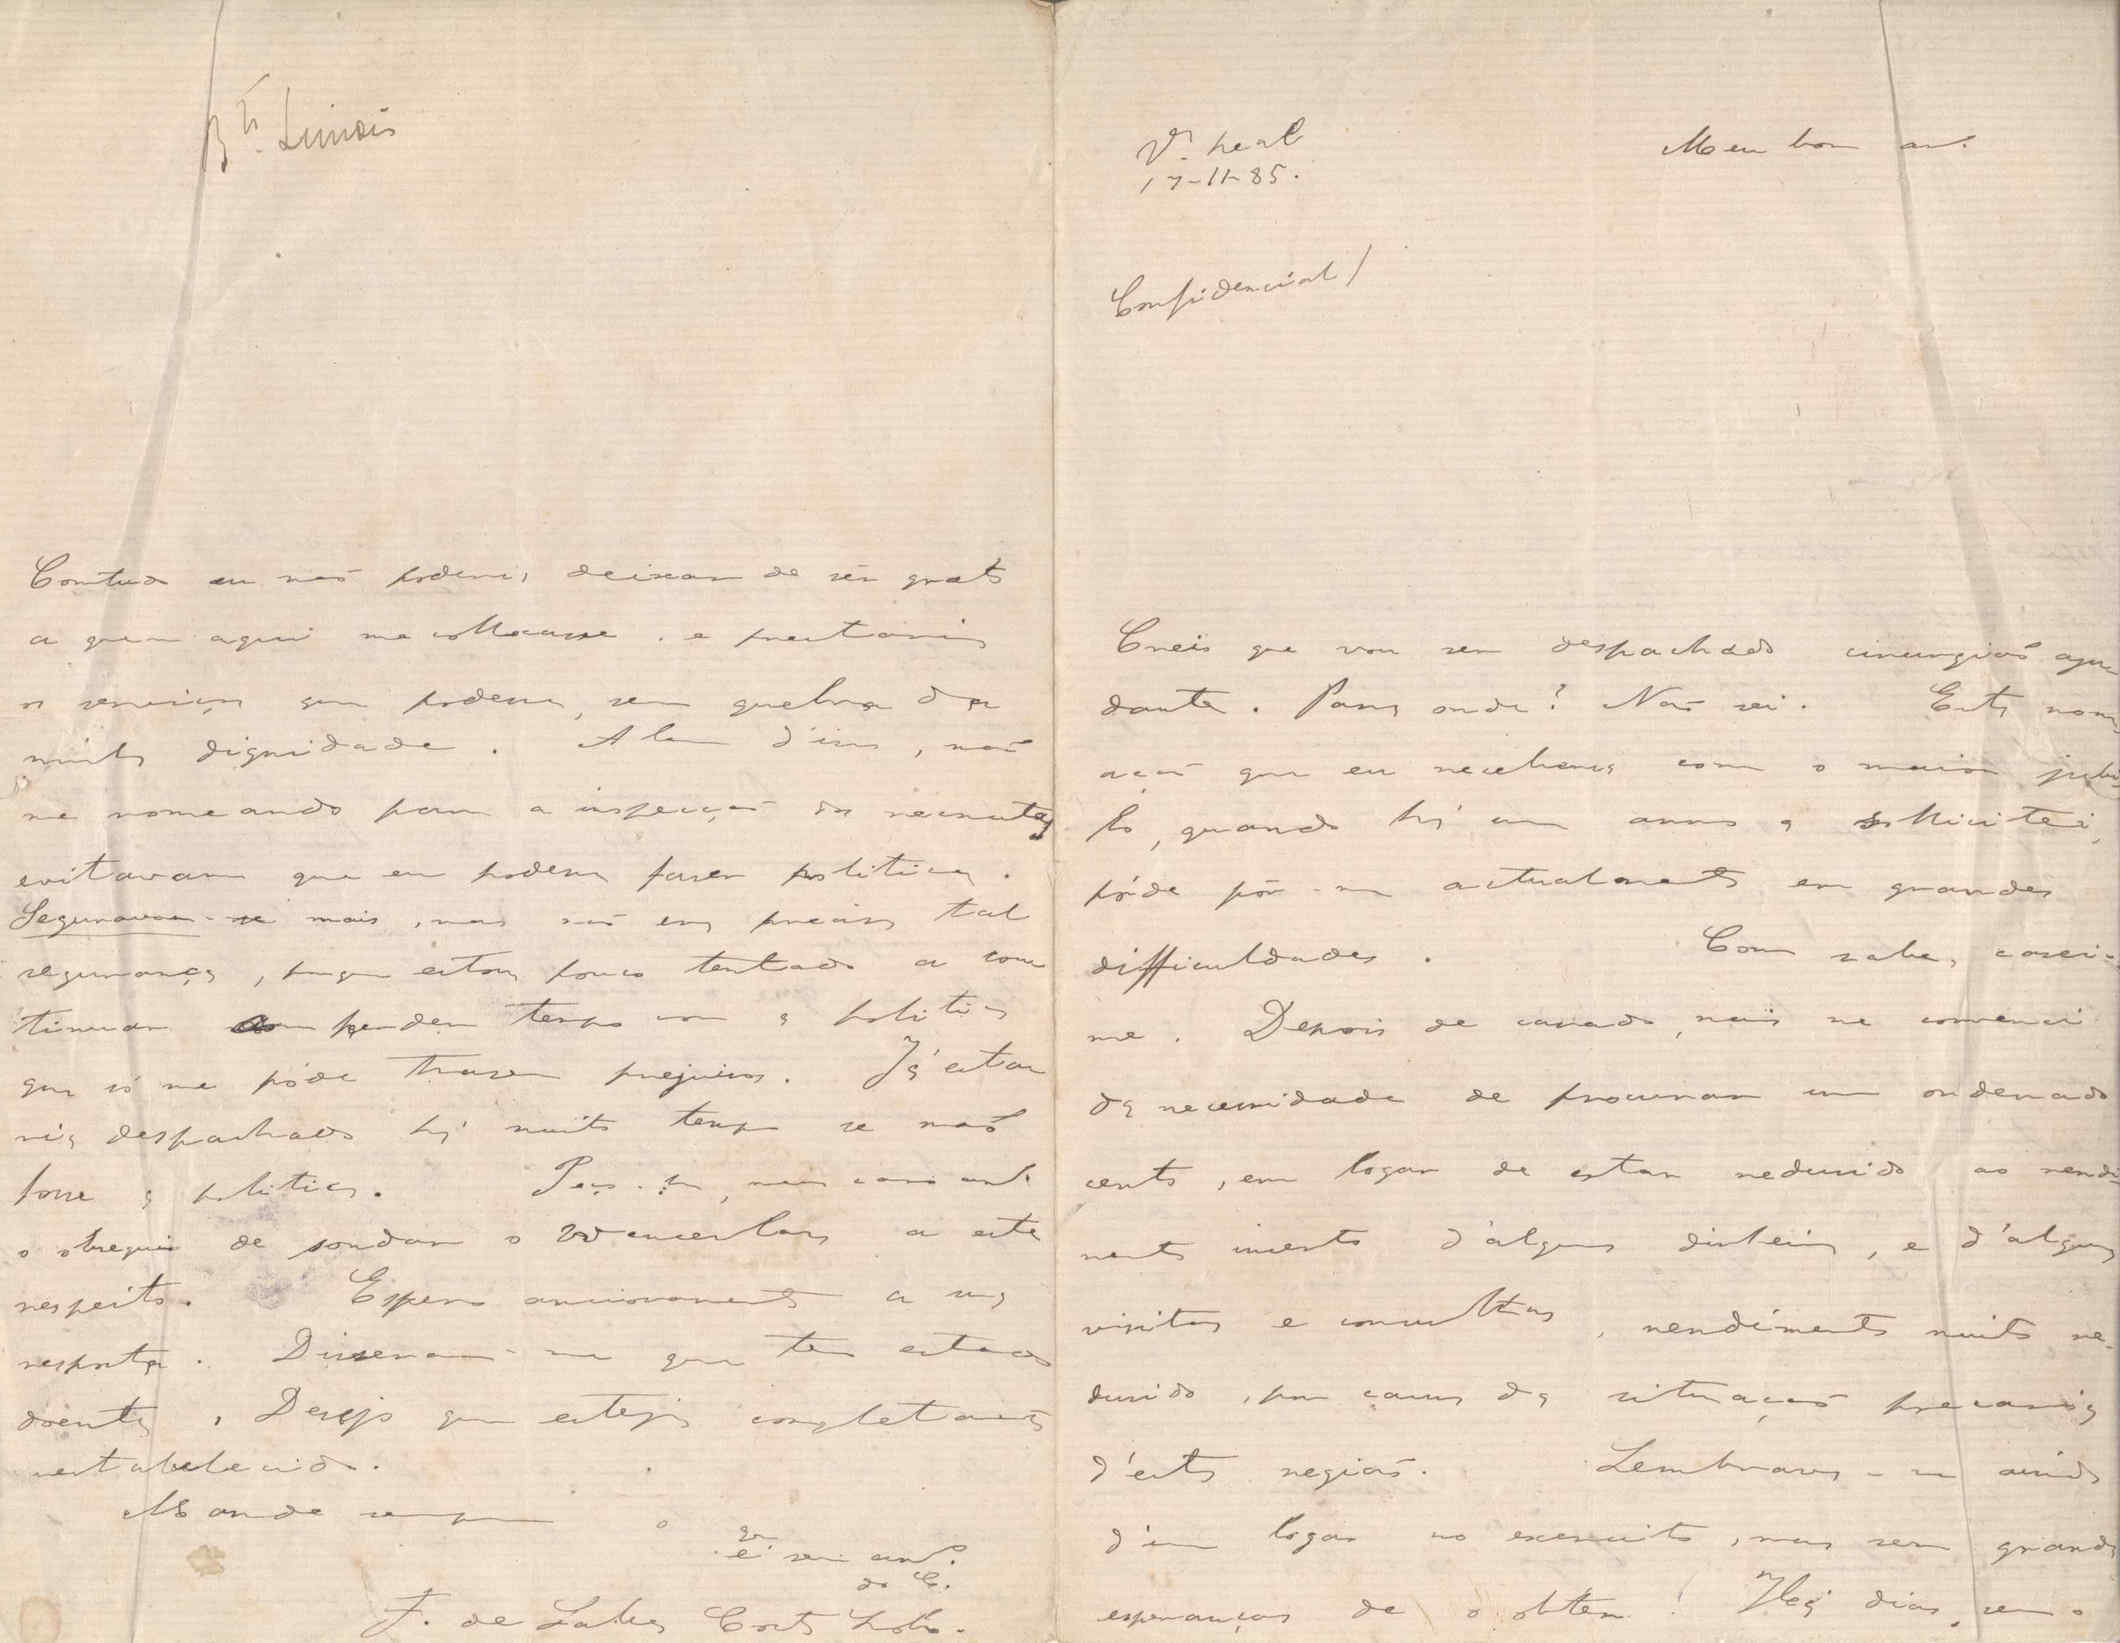 Vª Real
17-11-85.
Meu bom am.º
Confidencial/
Creio que vou ser despachado cirurgião aju-
dante. Para onde? Não sei. Esta nome
ação que eu receberia com o maior jubi
lo, quando há um anno a sollicitei,
póde pôr-me actualmente em grandes
difficuldades. Como sabe, casei-
me. Depois de casado, mais me convenci
da necessidade de procurar um ordenado
certo, em logar de estar redusido ao rendi-
mento incerto d'algum dinheiro, e d'algumas
visitas e consultas, rendimento muito re-
dusido, por causa da situação precaria
d'esta região. Lembrava-me ainda
d'um logar no exercito, mas sem grandes
esperanças de o obter! Há dias, sem o
Bº Limões
Comtudo eu não poderia deixar de ser grato
a quem aqui me collocasse. e prestaria
os serviços que podesse, sem quebra da
minha dignidade. Alem d'isso, não
me nomeando para a inspecção dos recrutas
evitavam que eu podesse faser politica.
Seguravam-se mais, mas não era preciso tal
segurança, porque estou pouco tentado a con
tinuar a perder tempo com a politica
que só me póde traser prejuisos. Já esta
ria despachado há muito tempo se não
fosse a politica. Peço-lhe, meu caro am.º
o obsequio de sondar o Wenceslau a este
respeito. Espero anciosamente a sua
resposta. Disseram-me que tem estado
doente. Desejo que esteja completamente
restabelecido.
Mande sempre o
que
é seu am.º
do C.
F. de Salles Costa Lobo.